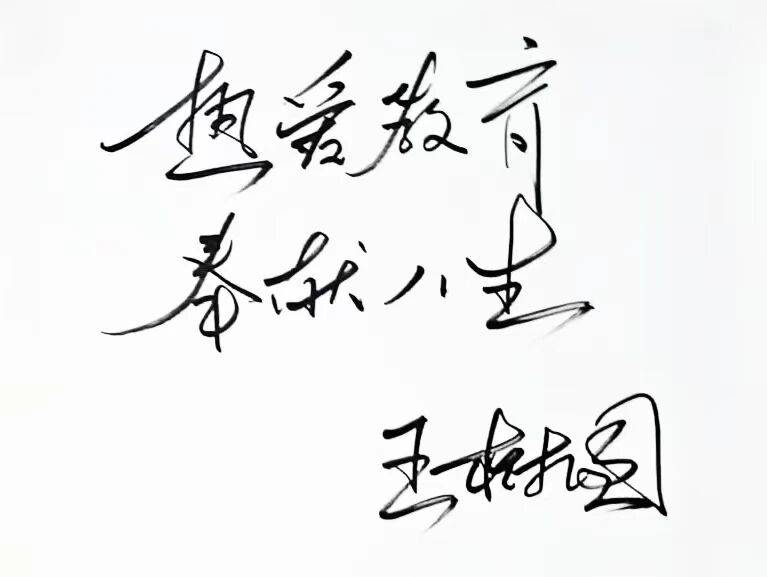 热爱教育
奉献人生
王树国